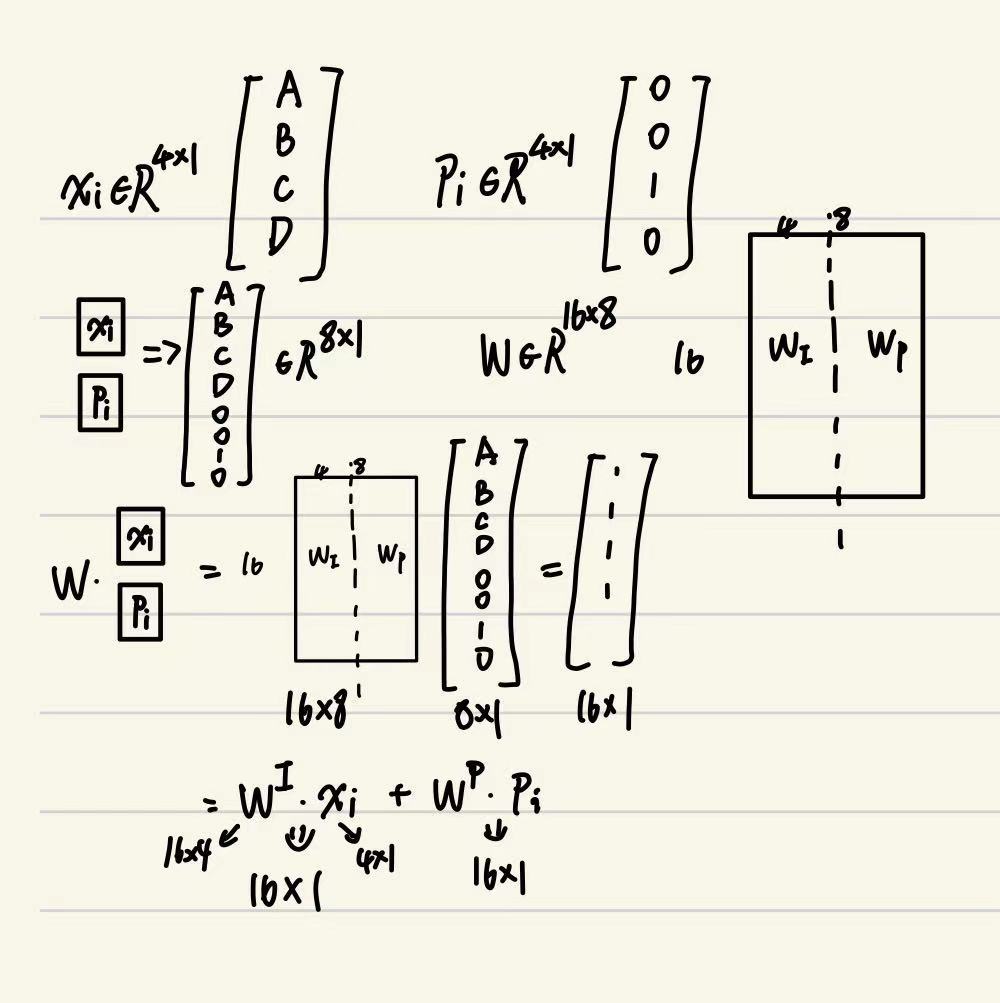 xi ∈ R^{4×1} [A B C D]
Pi ∈ R^{4×1} [0 0 1 0]
xi Pi => [A B C D 0 0 1 0] ∈ R^{8×1}
W ∈ R^{16×8} 16
4 8
W_I W_P
W · xi Pi = 16
4 8
W_I W_P
[A B C D 0 0 1 0] = [ ]
16×8 8×1 16×1
= W^I · xi + W^P · Pi
16×4 4×1
16×1 16×1